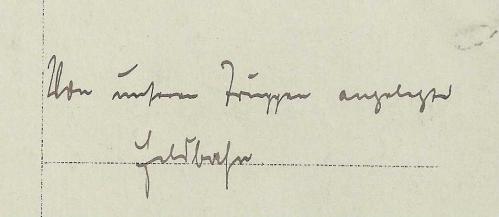 Von unseren Truppen angelegte
Feldbahn